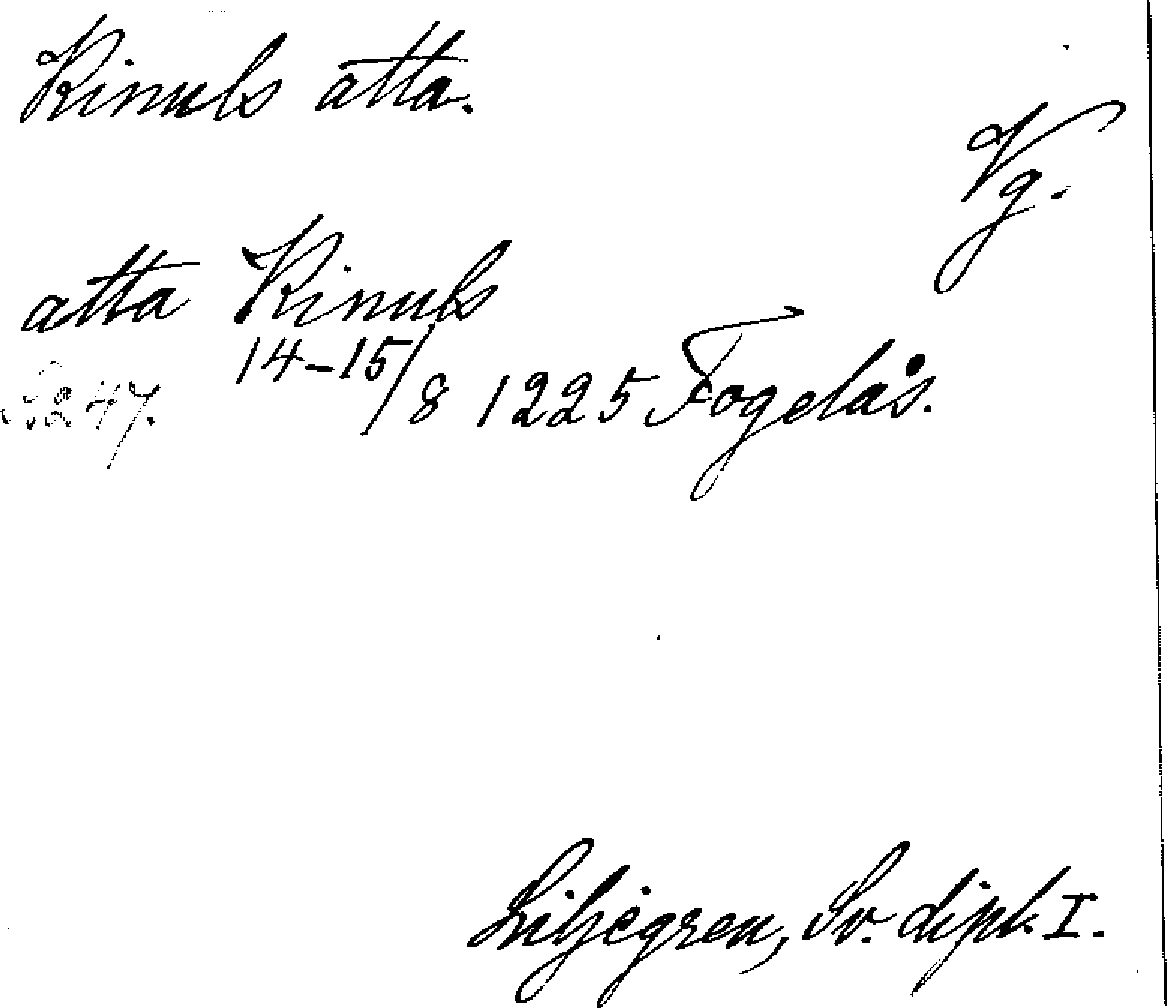 Kinuls ätta.
Vg.
atta Kinuls
14-15/8 1225 Fogelås.
S. 247.
Liljegren, Sv. dipl. I.